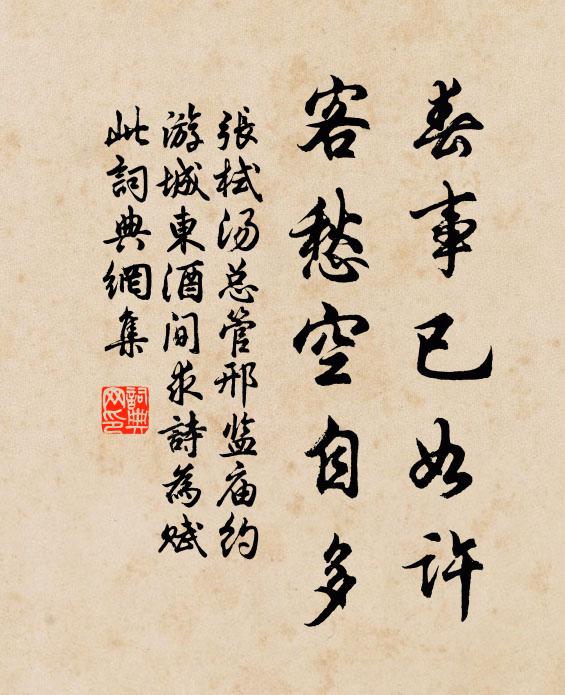 春事已如许
客愁空自多
張栻汤总管邢监庙约
游城東酒间求詩為赋
此詞典網集
詞典网印